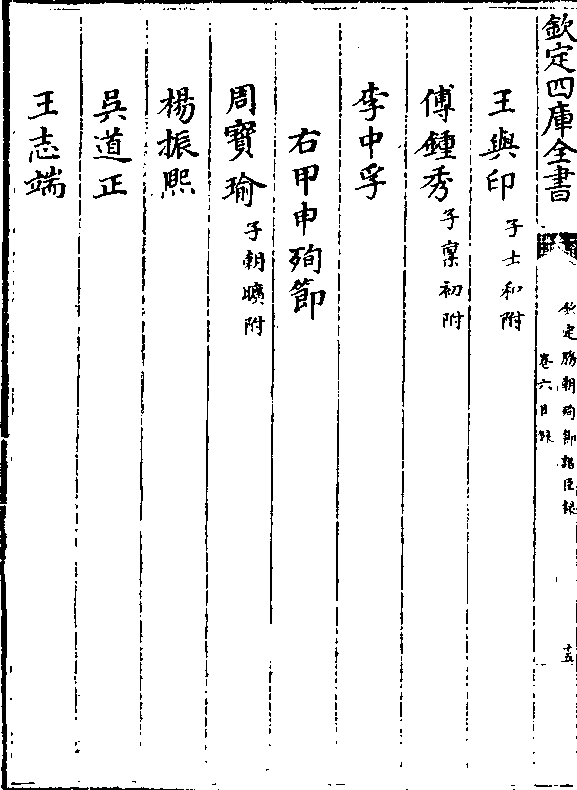 欽定四庫全書
欽定勝朝殉節諸臣錄
卷六目錄
十五
王與印子士和附
傅鍾秀子稟初附
李中孚
右甲申殉節
周寶瑜子朝曠附
楊振熙
吳道正
王志端